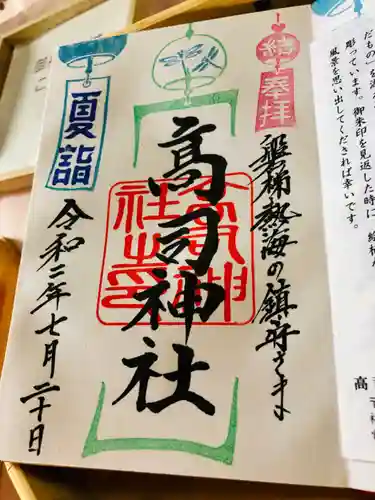 奉拝
結
磐梯熱海の鎮守さま
高司神社
高司神社之印
夏詣
令和二年七月二十日
彫っています。御朱印を見返した時に、
風景を思い出してくだされば幸いです。
高